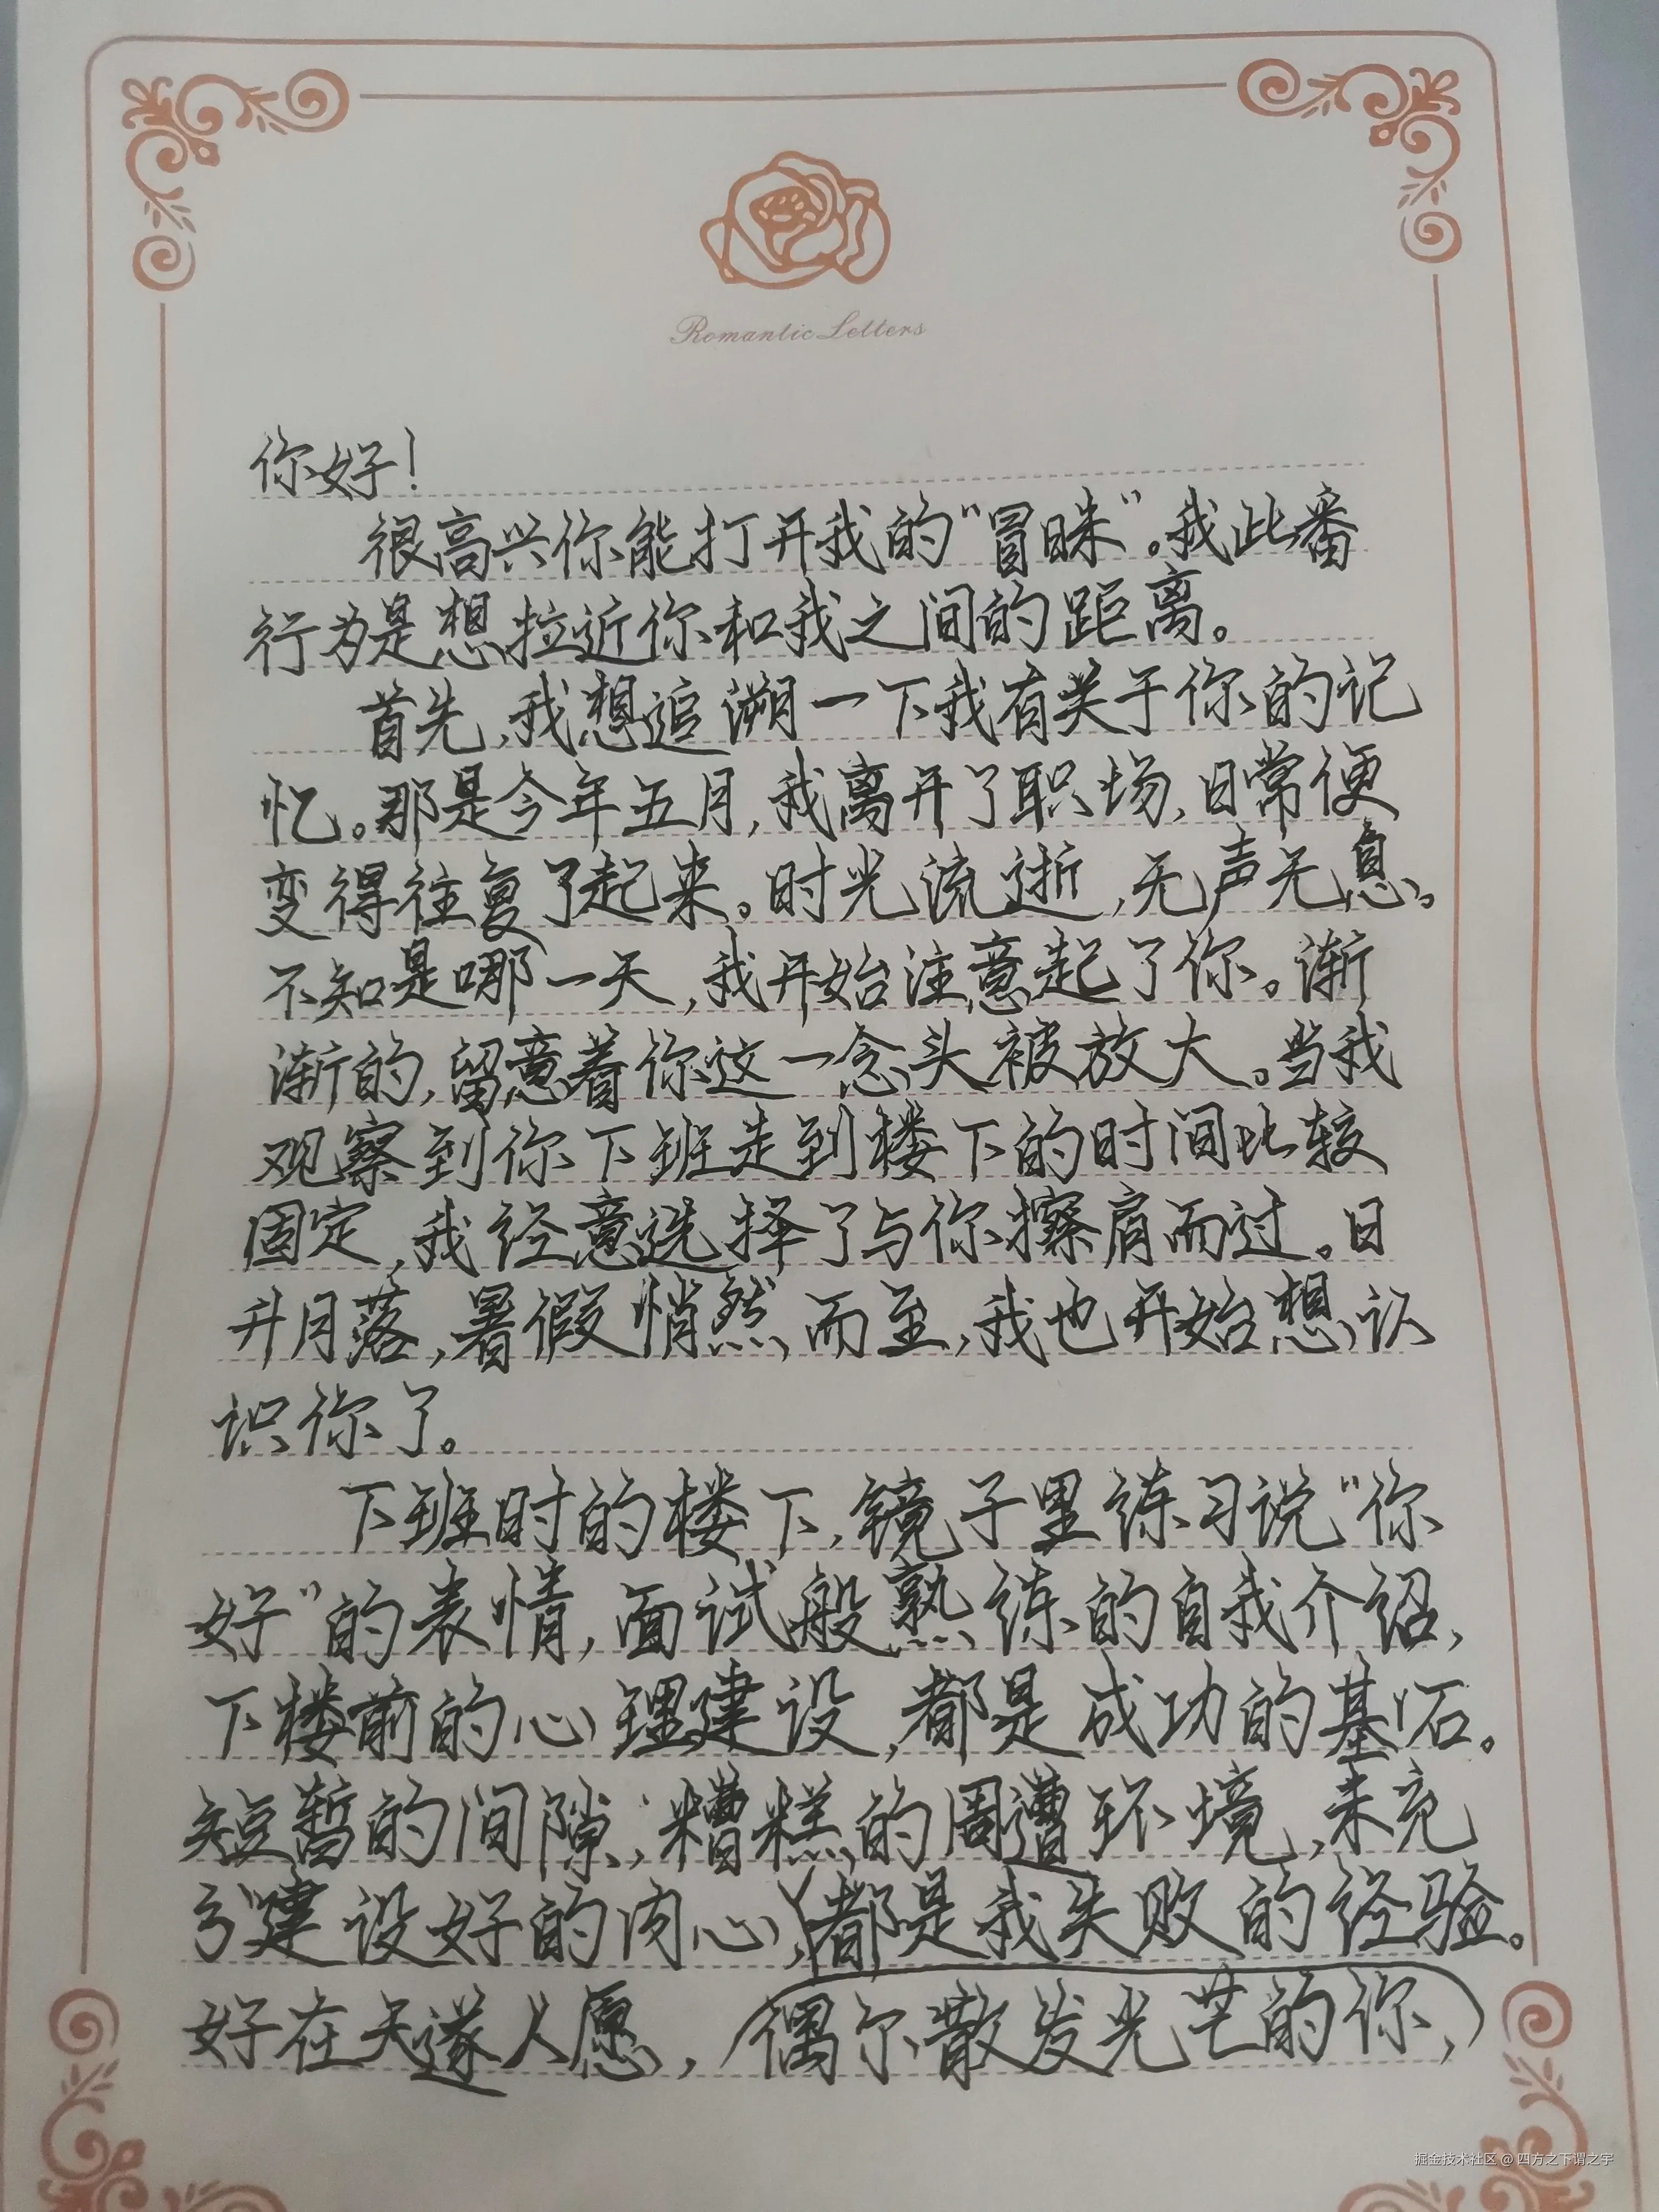 Romantic Letters
你好！
很高兴你能打开我的“冒昧”。我此番
行为是想拉近你和我之间的距离。
首先，我想追溯一下我有关于你的记
忆。那是今年五月，我离开了职场，日常便
变得往复了起来。时光流逝，无声无息。
不知是哪一天，我开始注意起了你。渐
渐的，留意着你这一念头被放大。当我
观察到你下班走到楼下的时间比较
固定，我经意选择了与你擦肩而过。日
升月落，暑假悄然而至，我也开始想认
识你了。
下班时的楼下，镜子里练习说“你
好”的表情，面试般熟练的自我介绍，
下楼前的心理建设，都是成功的基石。
短暂的间隙，糟糕的周遭环境，未充
分建设好的内心，都是我失败的经验。
好在天遂人愿，偶尔散发光芒的你，
掘金技术社区 @ 四方之下谓之宇